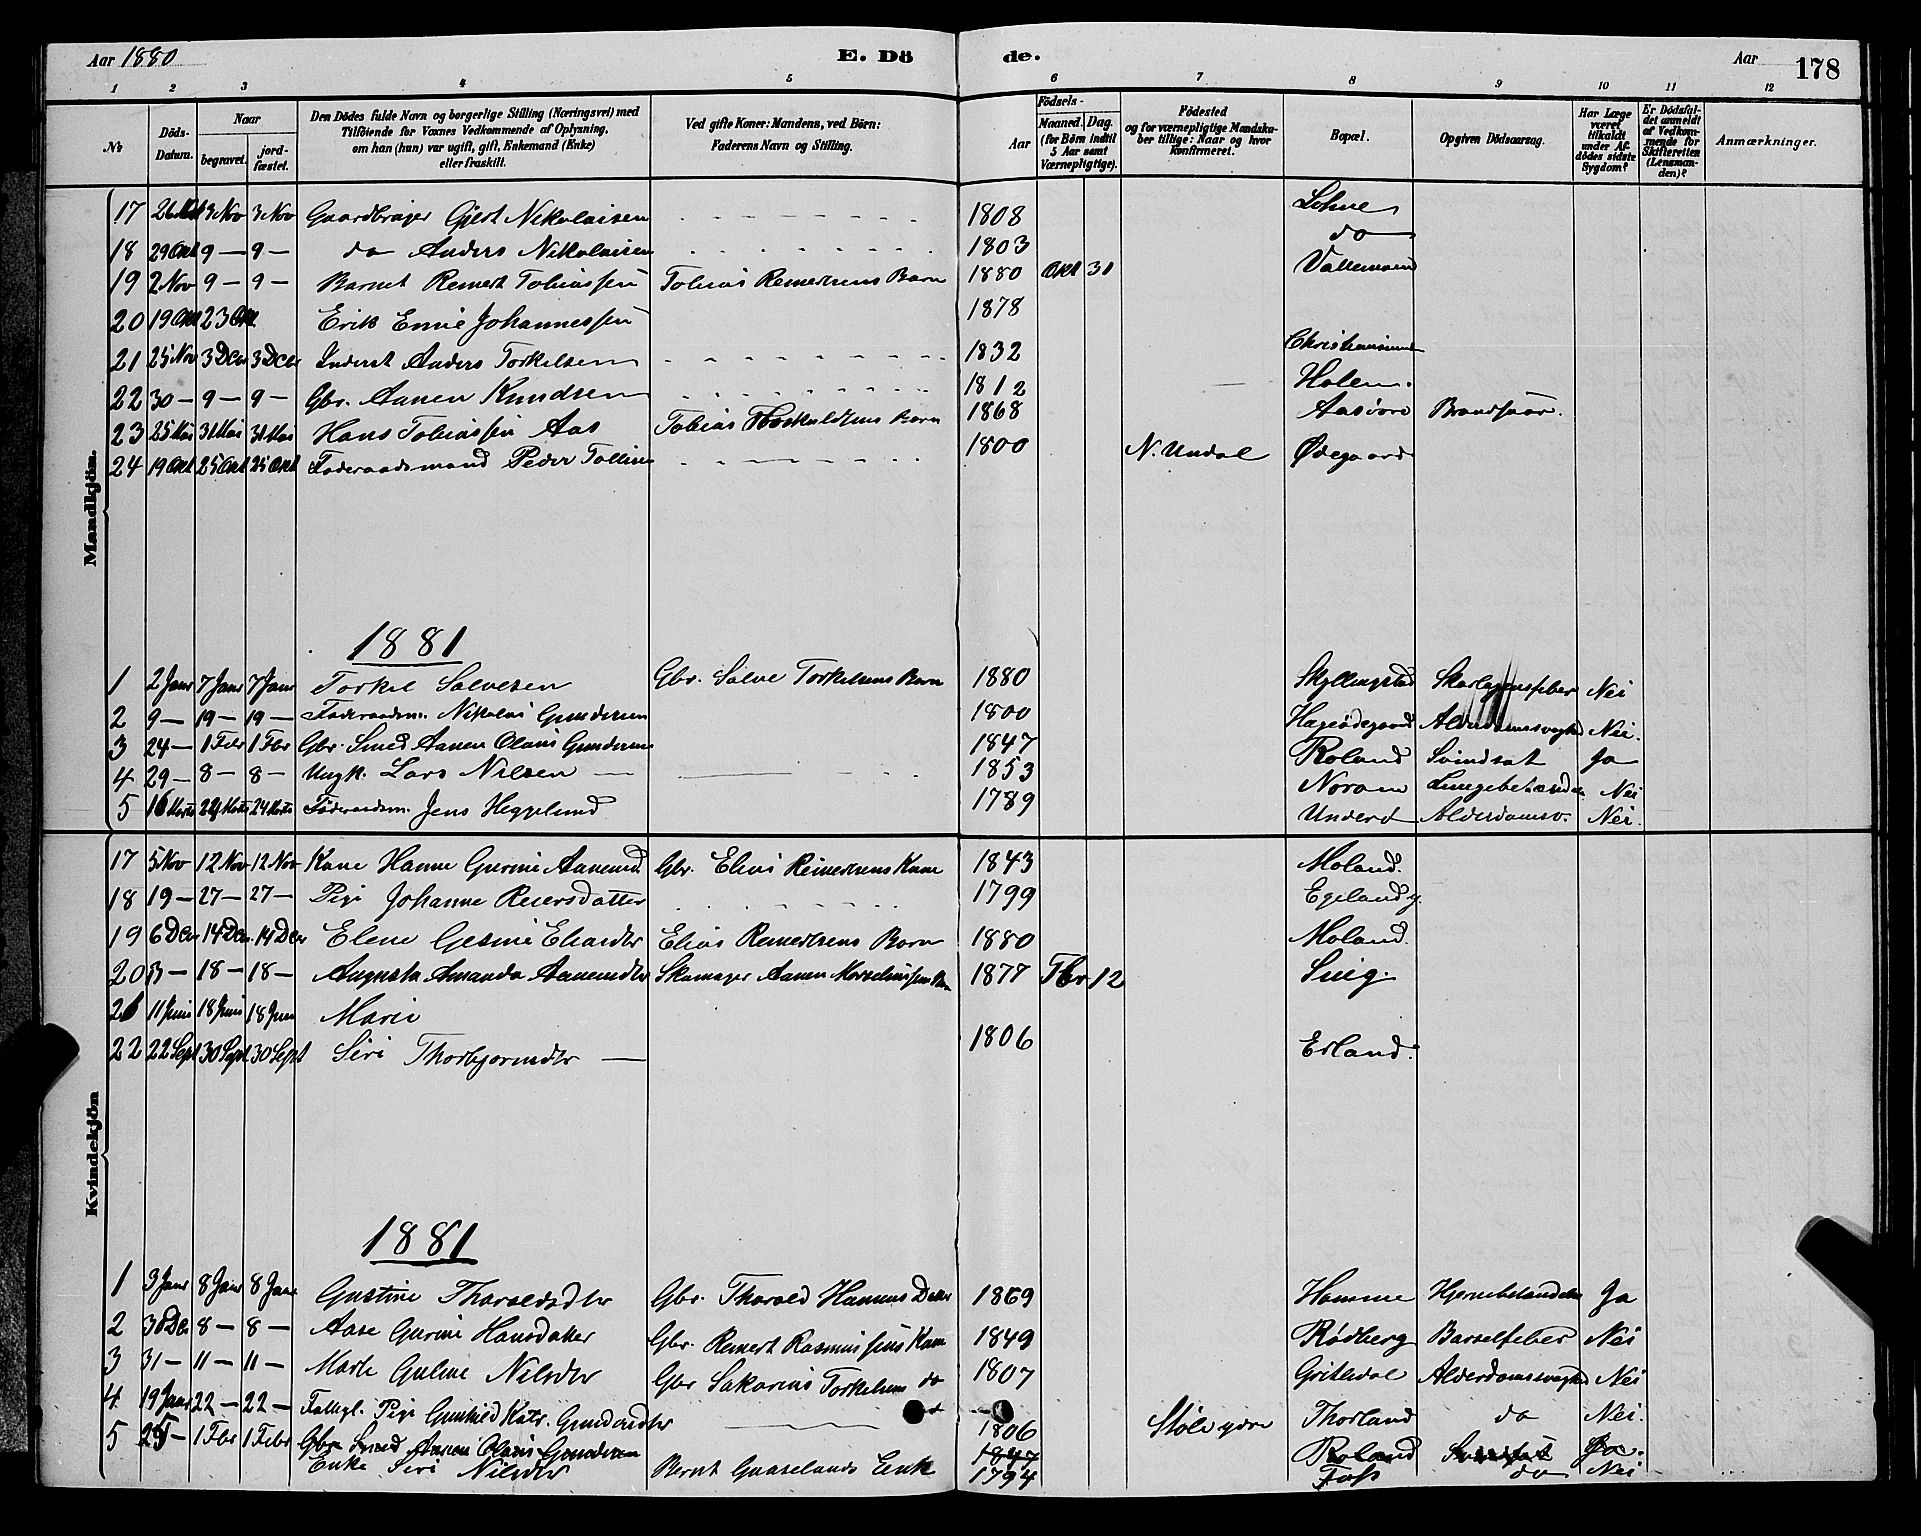 Aar 1880 E. Dö de. Aar 178
1 2 3 4 5 6 7 8 9 10 11 12
№ Döds-Datum. Naar begravet. jord-fæstet. Den Dödes fulde Navn og borgerlige Stilling (Næringsvei) med Tilföiende for Voxnes Vedkommende af Oplysning, om han (hun) var ugift, gift, Enkemand (Enke) eller fraskilt. Ved gifte Koner: Mandens, ved Börn: Faderens Navn og Stilling. Födsels- Aar Maaned. Dag. (for Börn indtil 5 Aar samt Værnepligtige). Födested og for værnepligtige Mandska-ber tillige: Naar og hvor konfirmeret. Bopæl. Opgiven Dödsaarsag. Har Læge været tilkaldt under Af-dödes sidste Sygdom? Er Dödsfal-det anmeldt af Vedkom-mende for Skifteretten (Lensman-den)? Anmærkninger.
Mandkjön.
17 26 Okt 3 Nov 3 Nov Gaardbruger Gjert Nikolaisen 1808 Lohne
18 29 Okt 9 — 9 — do Anders Nikolaisen 1803 do
19 2 Nov 9 — 9 — Barnet Remert Tobiassen Tobias Remertsens Barn 1880 Okt 31 Vallemoen
20 19 Okt 23 Okt Erik Emie Johannessen 1878
21 25 Nov 3 Decbr 3 Decbr Inderst Anders Torkelsen 1832 Christiansund
22 30 — 9 — 9 — Gbr. Aanen Knudsen 1812 Holen.
23 25 Mai 31 Mai 31 Mai Hans Tobiassen Aas Tobias Barn 1868 Aasiore Brandsaar.
24 19 Okt 25 Okt 25 Okt Föderaadsmand Peder Tollisen 1800 N. Undal Ødegaard
1881
1 2 Janr 7 Janr 7 Janr Torkel Salvesen Gbr. Salve Torkelsens Barn 1880 Skyllingstad Skarlagensfeber Nei
2 9 — 19 — 19 — Föderaadsm. Nikolai Gundersen 1800 Hageödegaard Alderdomssvaghed Nei.
3 24 — 1 Febr 1 Fbr Gbr. Smed Aanen Olaus Gundersen 1847 Roland Svindsot Ja
4 29 — 8 — 8 — Ungk. Lars Nilsen — 1853 Noraen Lungebetændelse Nei
5 16 Marts 24 Marts 24 Marts Föderaadsm. Jens Heggelund 1789 Underö Alderdomsv. Nei.
Kvindekjön
17 5 Nov 12 Nov 12 Nov Kone Hanne Gurine Aanensd. Gbr. Elias Reinertsens Kone 1843 Moland.
18 19 — 27 — 27 — Pige Johanne Reiersdatter 1799 Egeland y.
19 6 Dcbr 14 Dcbr 14 Dcbr Elene Gesine Eliasdtr Elias Remertsens Barn 1880 Moland.
20 13 — 18 — 18 — Augusta Amanda Aanensdtr Skomager Aanen Marseliussens Barn 1877 Fbr 12 Snig.
21 11 Juni 18 Juni 18 Juni Marie
22 22 Sept 30 Sept 30 Sept Siri Thorbjornsdtr — 1806 Erland.
1881
1 3 Janr 8 Janr 8 Janr Gustine Tharaldsdtr Gbr. Tharald Hammes Datter 1869 Homme Hjernebetændelse Ja
2 30 Dcr 8 — 8 — Aase Gurine Hansdatter Gbr. Remert Rasmussens Kone 1849 Rødberg Barselfeber Nei
3 31 — 11 — 11 — Marte Guline Nilsdtr Gbr Sakarias Torkelsens do 1807 Gritledal Alderdomssvaghed Nei
4 19 Janr 22 — 22 — Fattigl. Pige Gunhild Katr. Gundersdtr 1806 Støle ydre Thorland do Nei.
5 25 — 1 Fbr 1 Febr Gbr Smed Aanen Olaus Gundersen 1847 Roland Svindsot Ja.
Enke Siri Nilsdtr Bernt Gaaselands Enke 1794 Foss do Nei